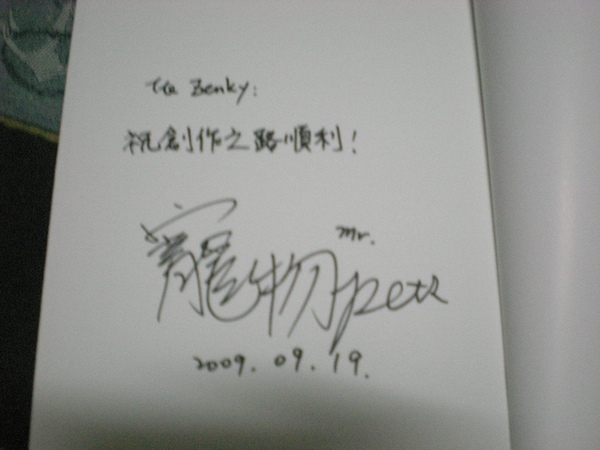 To Zenky:
祝創作之路順利!
寵物 Mr. Pets
2009.09.19.